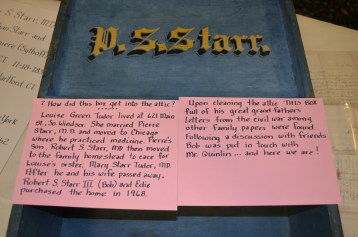 P.S. Starr.
? How did this box get into the attic?
Louise Green Tudor lived at 621 Main
St, So. Windsor. She married Pierre
Starr, M.D. and moved to Chicago
where he practiced medicine. Pierre's
Son, Robert S. Starr, MD then moved
to the family homestead to care for
Louise's sister, Mary Starr Tudor, MD.
After he and his wife passed away,
Robert S Starr III (Bob) and Edie
purchased the home in 1968.
Upon cleaning the attic, THIS BOX
full of his great grand-fathers
letters from the civil war among
other family papers were found
Following a discussion with friends
Bob was put in touch with
Mr. Quinlin ... and here we are!